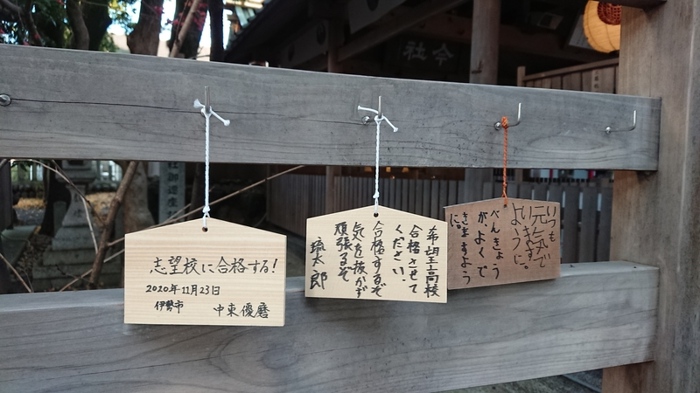 今社
志望校に合格する!
2020年11月23日
伊勢市
中東優磨
希望高校
合格させて
ください。
合格するぞ
気を抜かず
頑張るぞ
琉太郎
いつも
元気で
いますように。
べんきょう
が、よくで
きますよう
に。